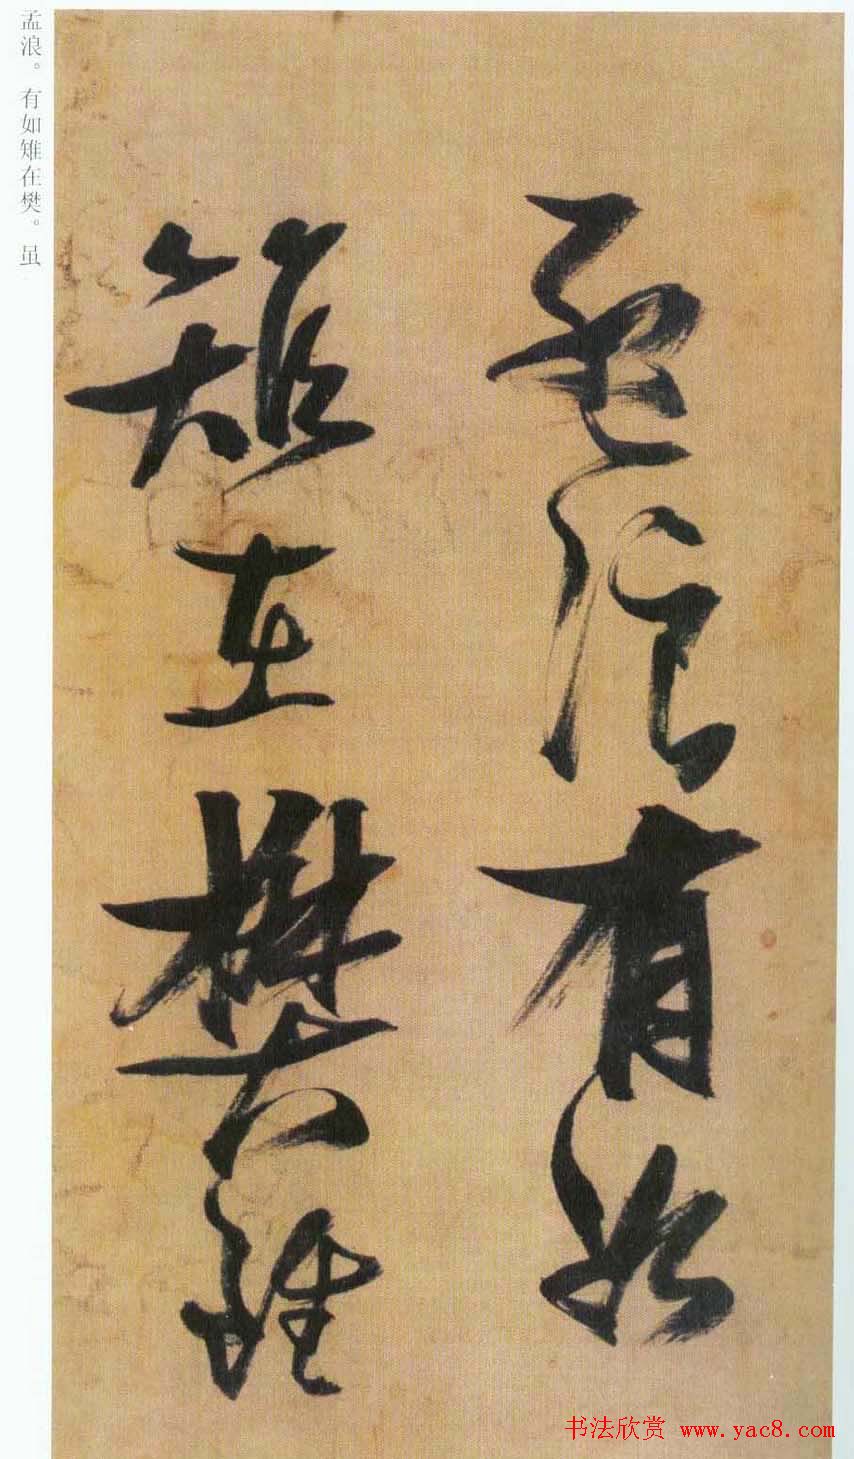 孟浪有如
雉在樊雖
孟浪。有如雉在樊。虽
书法欣赏 www.yac8.com